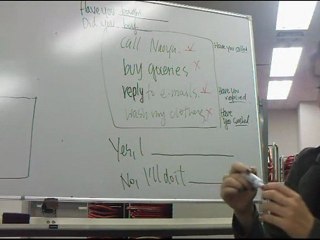 Have you
Did you
Call Naoya. x
Have you called
buy groceries x
reply to e-mails x
Have you replied
wash my clothes x
Have you washed
Yes, I
No, I'll do it